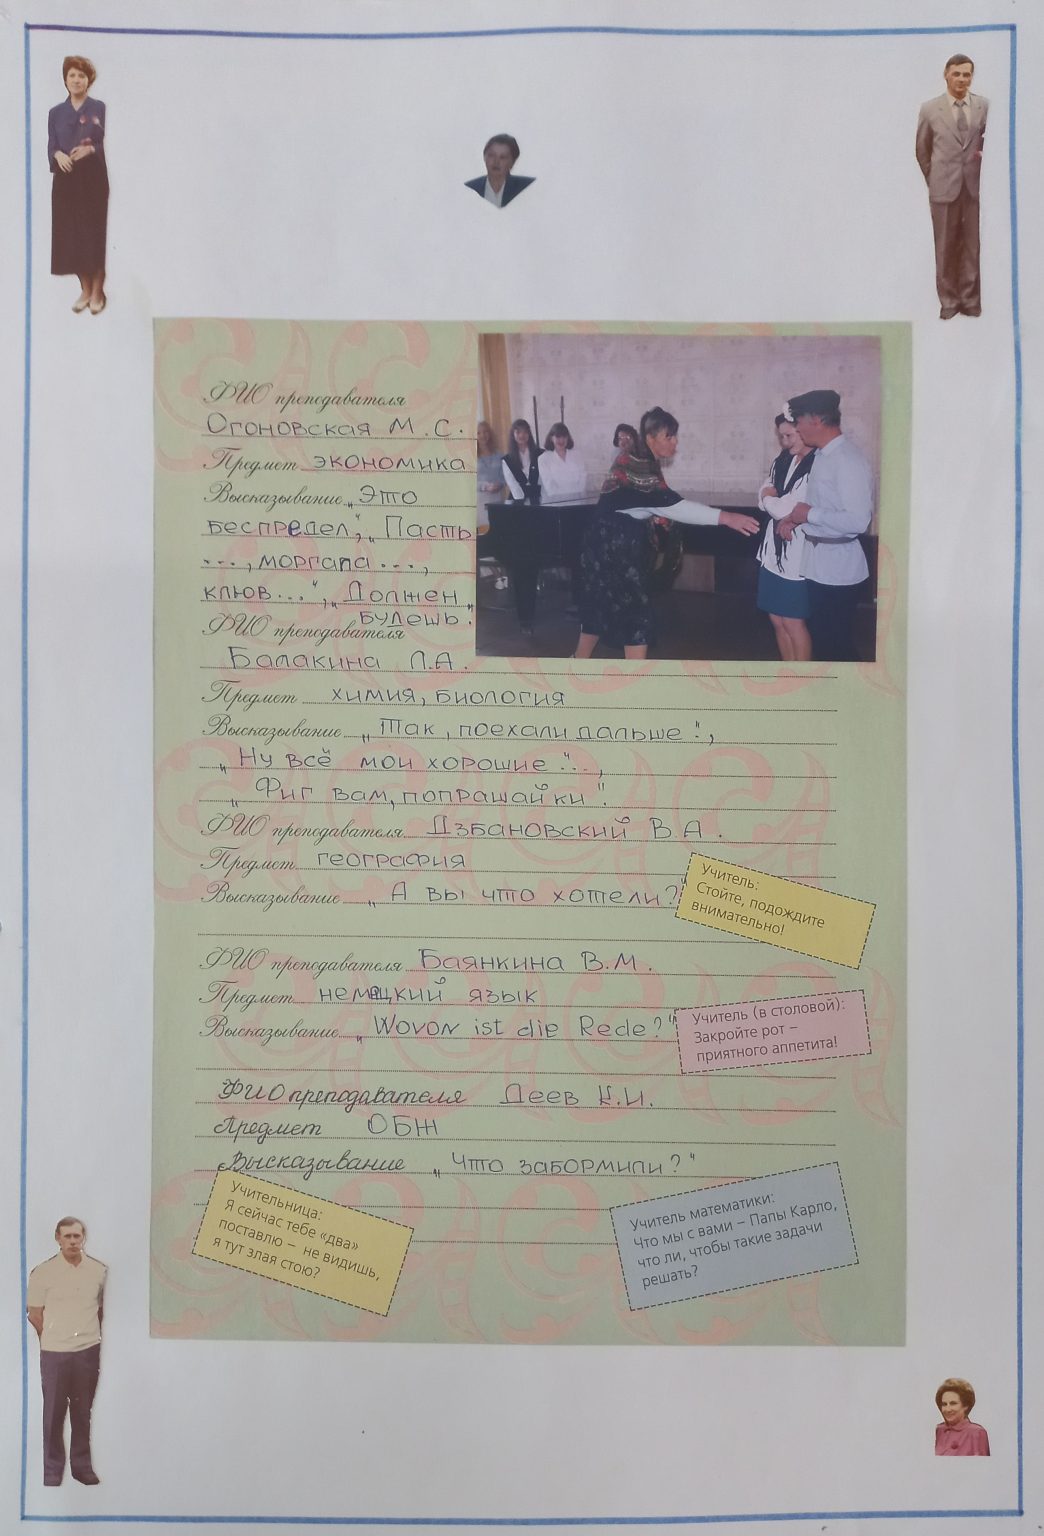 ФИО преподавателя
Огоновская М.С.
Предмет экономика
Высказывание „Это
беспредел“, „Пасть
..., моргала ...,
клюв...“, „Должен
будешь“.
ФИО преподавателя
Балакина Л.А.
Предмет химия, биология
Высказывание „Так, поехали дальше“.,
„Ну всё мои хорошие“...,
„Фиг вам, попрашайки“.
ФИО преподавателя Дзбановский В.А.
Предмет география
Высказывание „А вы что хотели?“
Учитель:
Стойте, подождите
внимательно!
ФИО преподавателя Баянкина В.М.
Предмет немецкий язык
Высказывание „Wovon ist die Rede?“
Учитель (в столовой):
Закройте рот –
приятного аппетита!
ФИО преподавателя Деев К.И.
Предмет ОБЖ
Высказывание „Что забормили?“
Учительница:
Я сейчас тебе «два»
поставлю – не видишь,
я тут злая стою?
Учитель математики:
Что мы с вами – Папы Карло,
что ли, чтобы такие задачи
решать?